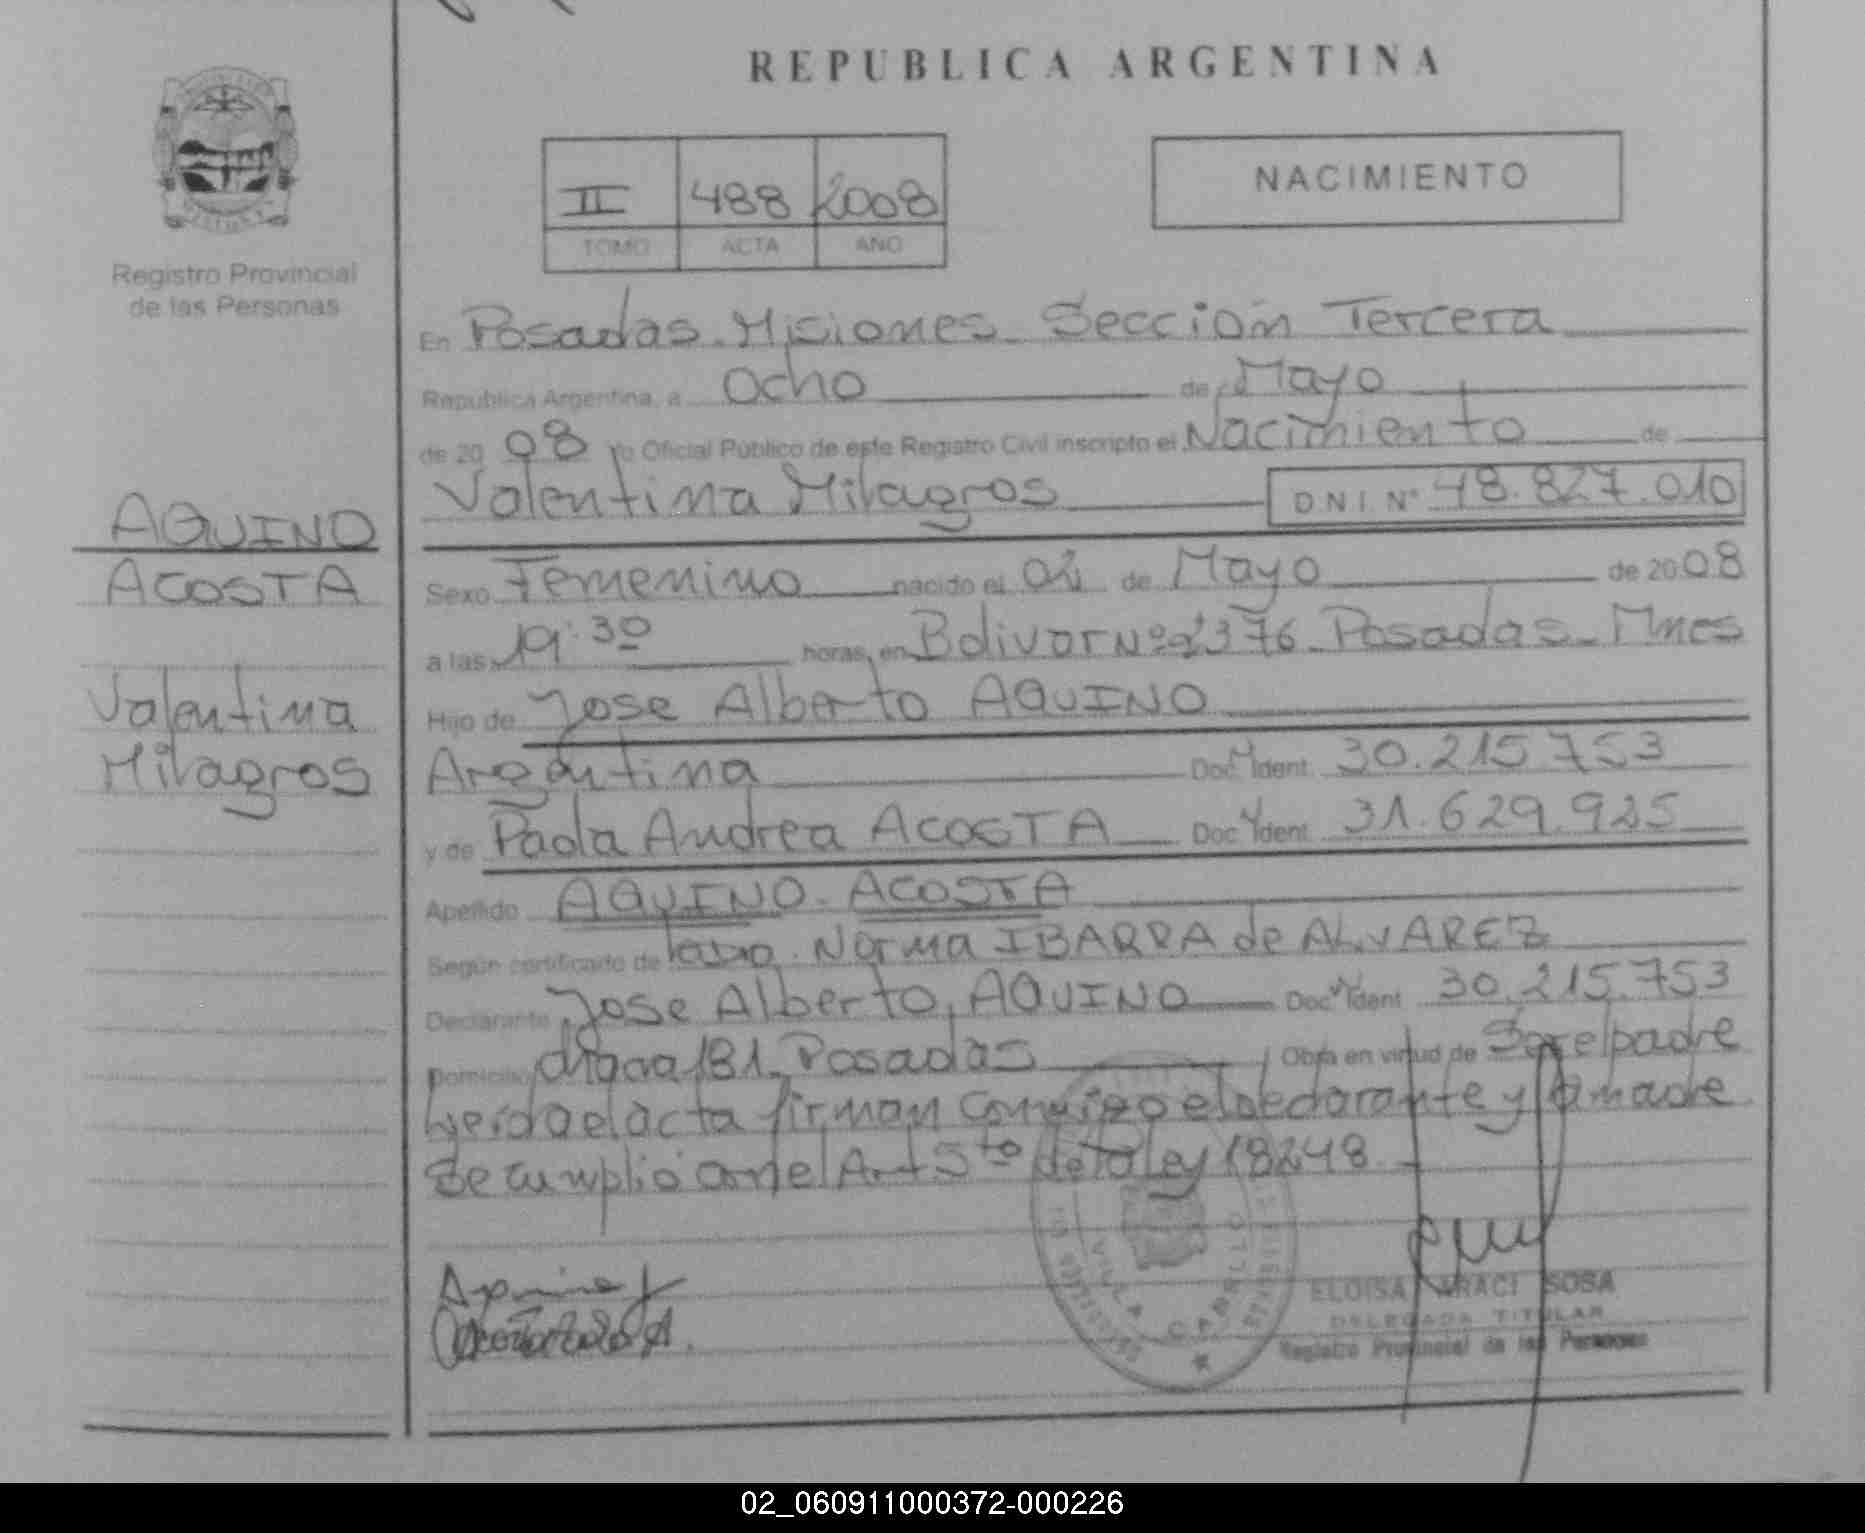 REPUBLICA ARGENTINA
II 488 2008
TOMO ACTA AÑO
NACIMIENTO
Registro Provincial
de las Personas
En Posadas. Misiones. Sección Tercera
Republica Argentina, a Ocho de Mayo
de 20 08 yo Oficial Público de este Registro Civil inscripto el Nacimiento de
Valentina Milagros D.N.I. N° 48.827.010
AQUINO
ACOSTA
Valentina
Milagros
Sexo Femenino nacido el 02 de Mayo de 2008
a las 19:30 horas, en Bolivar Nº 2376. Posadas. Mnes
Hijo de Jose Alberto AQUINO
Argentina Doc. Ident. 30.215.753
y de Paola Andrea ACOSTA Doc. Ident. 31.629.925
Apellido AQUINO. ACOSTA
Según certificado de Norma IBARRA de ALVAREZ
Declarante Jose Alberto AQUINO Doc. Ident. 30.215.753
Domicilio 181. Posadas Obra en virtud de Ser el padre
leida el acta firman conmigo el declarante y la madre
Se cumplió con el Art 5to de la Ley 18248
VILLA CABELLO
ELOISA ARACI SOSA
DELEGADA TITULAR
Registro Provincial de las Personas
02_060911000372-000226